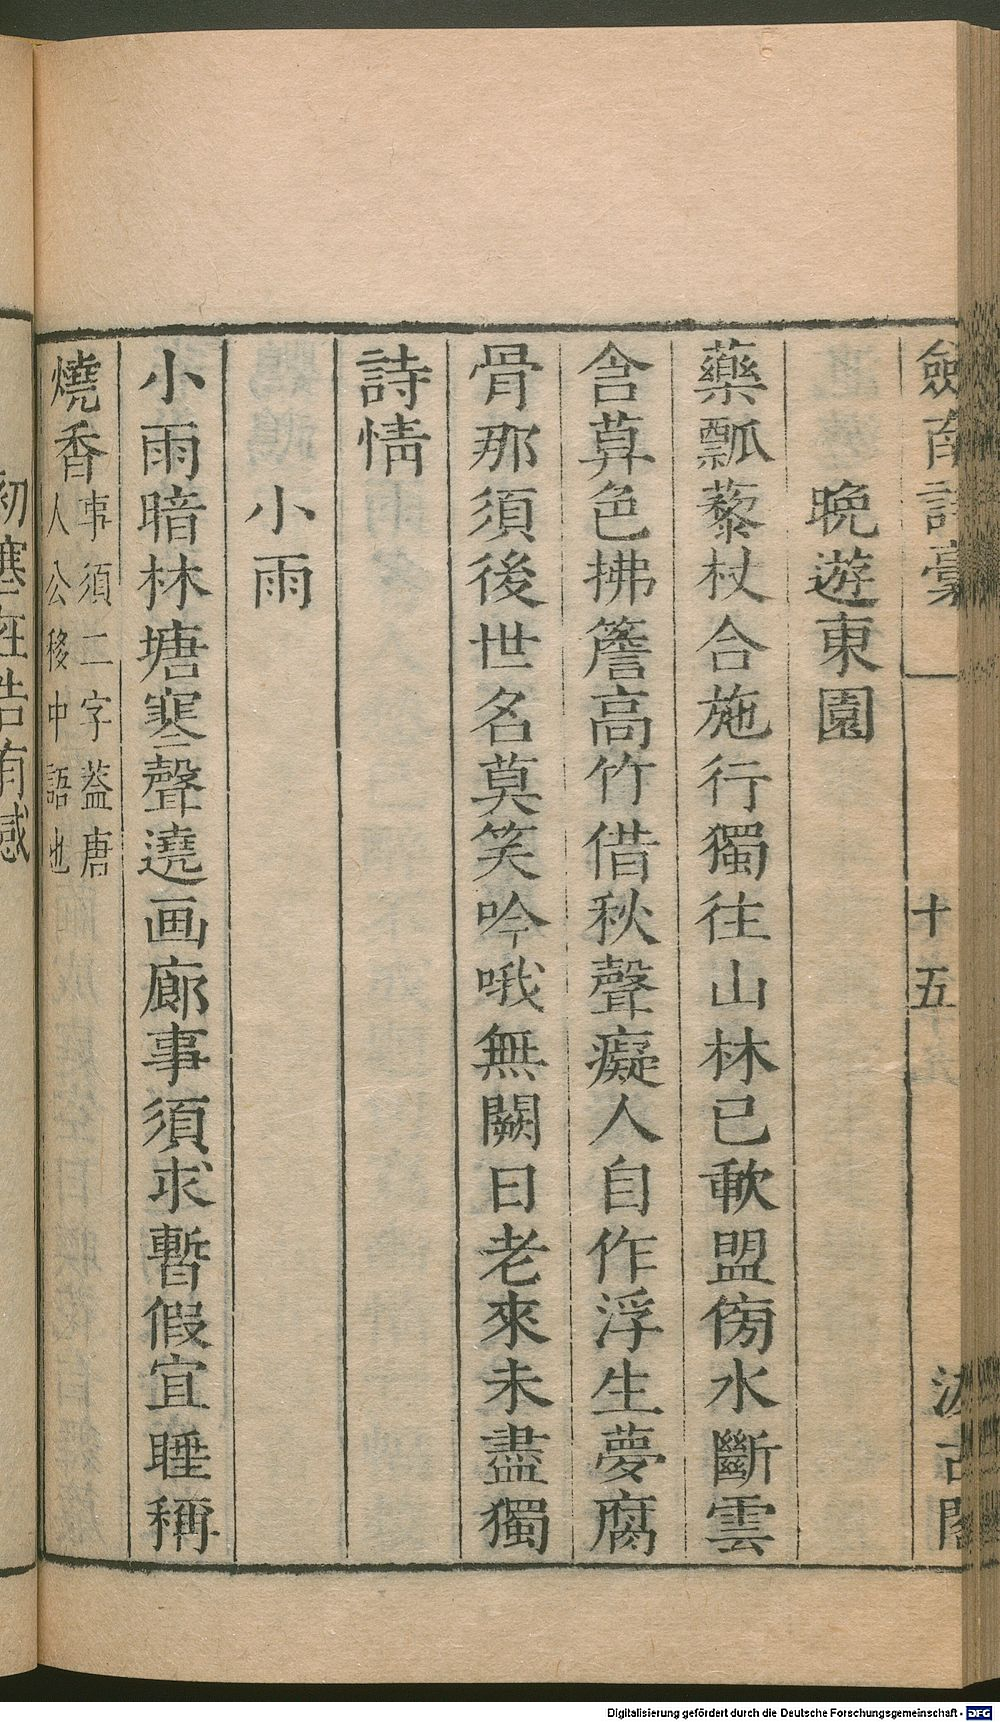 劍南詩稾
十五
汲古閣
晚遊東園
藥瓢藜杖合施行獨往山林已歃盟傍水斷雲
含莫色拂簷高竹借秋聲癡人自作浮生夢腐
骨那須後世名莫笑吟哦無闕日老來未盡獨
詩情
小雨
小雨暗林塘寒聲遶画廊事須求暫假宜睡稱
燒香事須二字葢唐
人公移中語也
初寒在告有感
Digitalisierung gefördert durch die Deutsche Forschungsgemeinschaft - DFG